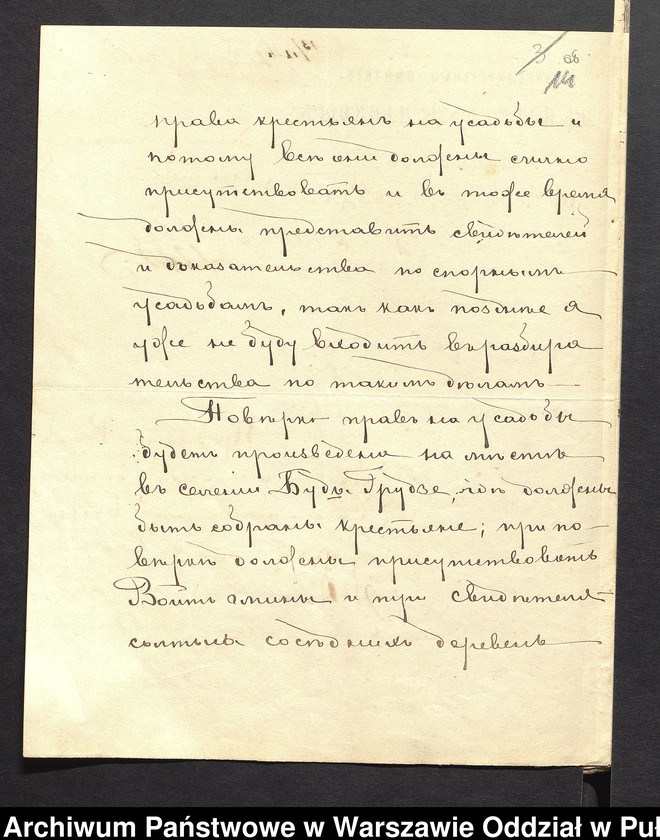 3 68
права крестьянъ на усадьбы и
потому всѣ они должны лично
присутствовать и въ тоже время
должны представить свидѣтелей
и доказательства по спорнымъ
усадьбамъ, такъ какъ позднѣе я
уже не буду входить въ разбира
тельства по такимъ дѣламъ —
Повѣрка правъ на усадьбы
будетъ произведена на мѣстѣ
въ селеніи Буды Грудзе, гдѣ должны
быть собраны крестьяне; при по-
вѣркѣ должны присутствовать
Войтъ гмины и три свидѣтеля
солтыса сосѣднихъ деревень
Archiwum Państwowe w Warszawie Oddział w Puł